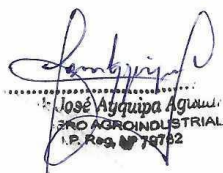 José Ayquipa
ERO AGROINDUSTRIAL
I.P. Reg. Nº 79782